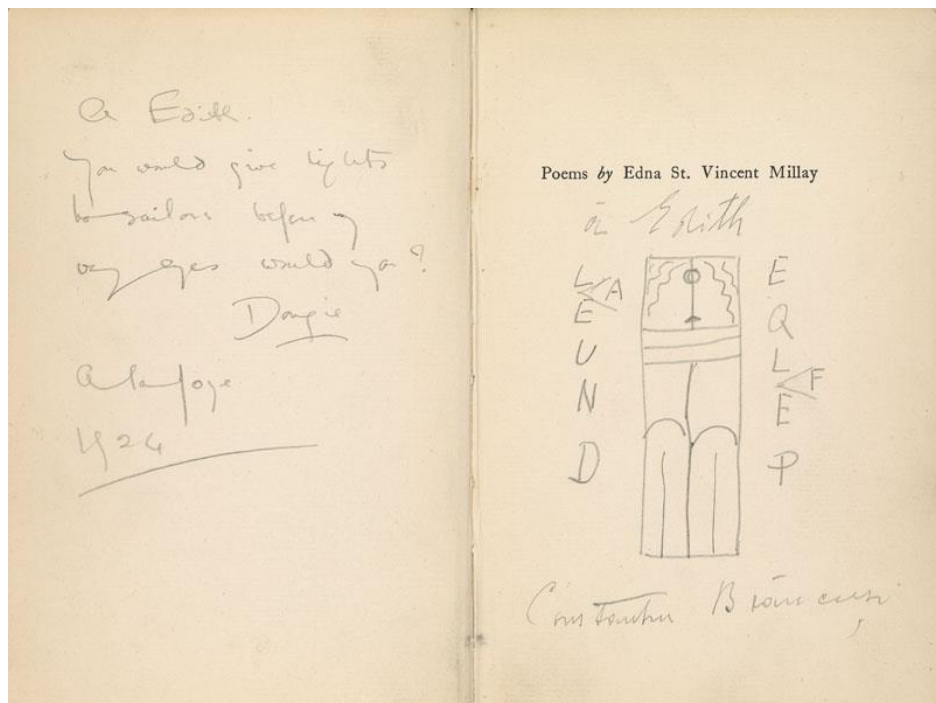 a Edith.
You would give lights
to sailors before my
very eyes would you?
Dougie
1924
Poems by Edna St. Vincent Millay
à Edith
L E
A
E Q
U L
F
N E
D P
Constantin Brâncuși